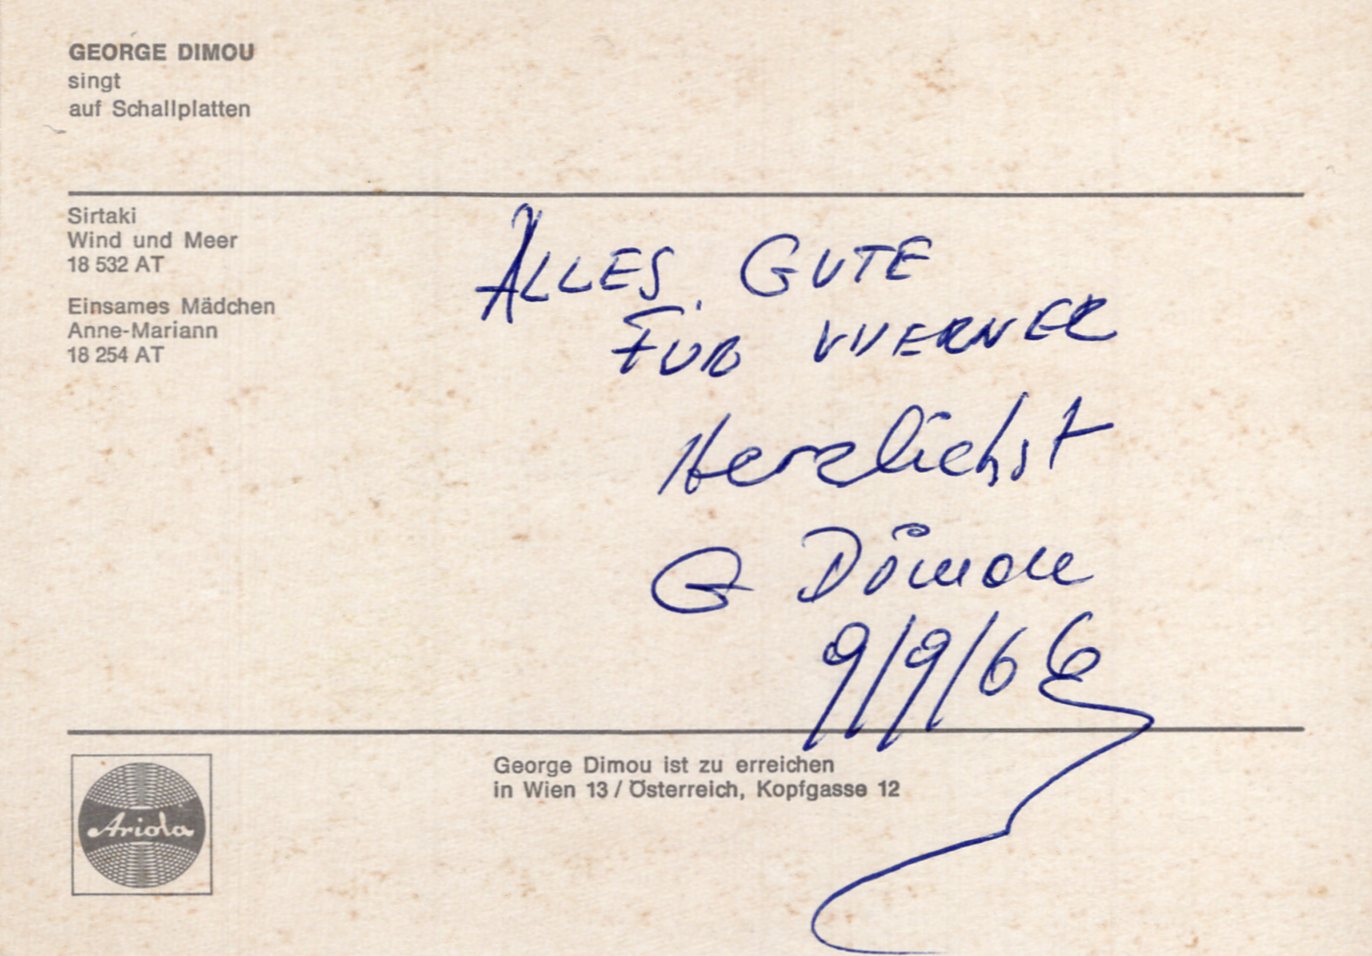 GEORGE DIMOU
singt
auf Schallplatten
Sirtaki
Wind und Meer
18 532 AT
Einsames Mädchen
Anne-Mariann
18 254 AT
ALLES GUTE
FÜR WERNER
Herzlichst
G Dimou
9/9/66
Ariola
George Dimou ist zu erreichen
in Wien 13 / Österreich, Kopfgasse 12